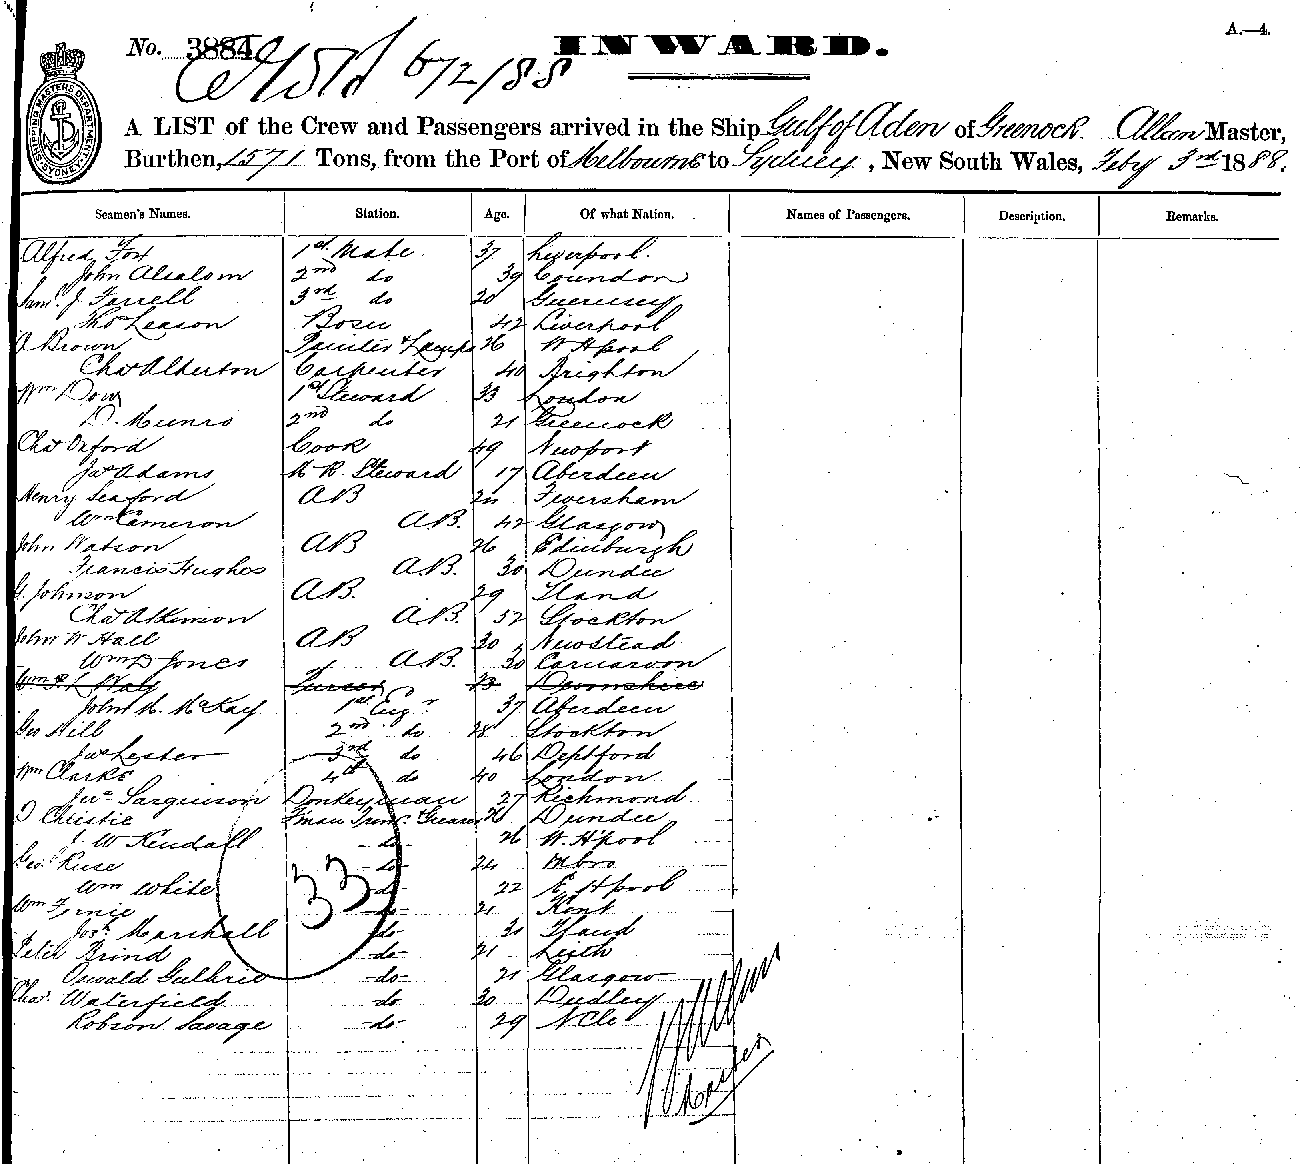 A.—4.
No. 3884 INWARD.
672/88
A LIST of the Crew and Passengers arrived in the Ship Gulf of Aden of Greenock. Allan Master,
Burthen, 1571 Tons, from the Port of Melbourne to Sydney, New South Wales, Feby 3rd 1888.
SHIPPING MASTERS DEPARTMENT SYDNEY
Seamen's Names. Station. Age. Of what Nation. Names of Passengers. Description. Remarks.
Alfred Fox 1st Mate. 37 Liverpool.
John Absalom 2nd do 39 Coundon
Saml. J. Farrell 3rd do 20 Guernsey
Thos Leason Bosn 42 Liverpool
A Brown Painter & Lamps 26 W Hpool
Chas Alberton Carpenter 40 Brighton
Wm Dow 1st Steward 33 London
D. Munro 2nd do 21 Greenock
Chas Oxford Cook 49 Newport
Jas Adams M. R. Steward 17 Aberdeen
Henry Seaford AB 24 Feversham
Wm Cameron AB. 42 Glasgow
John Watson AB 26 Edinburgh
Francis Hughes AB. 30 Dundee
G. Johnson AB. 29 Fland
Chas Atkinson AB. 52 Stockton
John W Hall AB 30 Newstead
Wm D Jones AB. 30 Carnarvon
Wm Purser 23 Devonshire
John M. McKay 1st Engr 37 Aberdeen
Geo Hill 2nd do 28 Stockton
Jas Lester 3rd do 46 Deptford
Wm Clarke 4th do 40 London
Jno. Sarginson Donkeyman 27 Richmond
D Christie Fman Trimr Greaser 26 Dundee
J. W Kendall do 26 W. Hpool
Geo. Ruse do 24 Mbro
Wm White do 22 E Hpool
Wm Fernie do 21 Kent
Josh Marshall do 30 Fland
Peter Brind do 21 Leith
Oswald Guthrie do 21 Glasgow
Chas. Waterfield do 30 Dudley
Robson Savage do 29 N Cle
33
Allan
Master